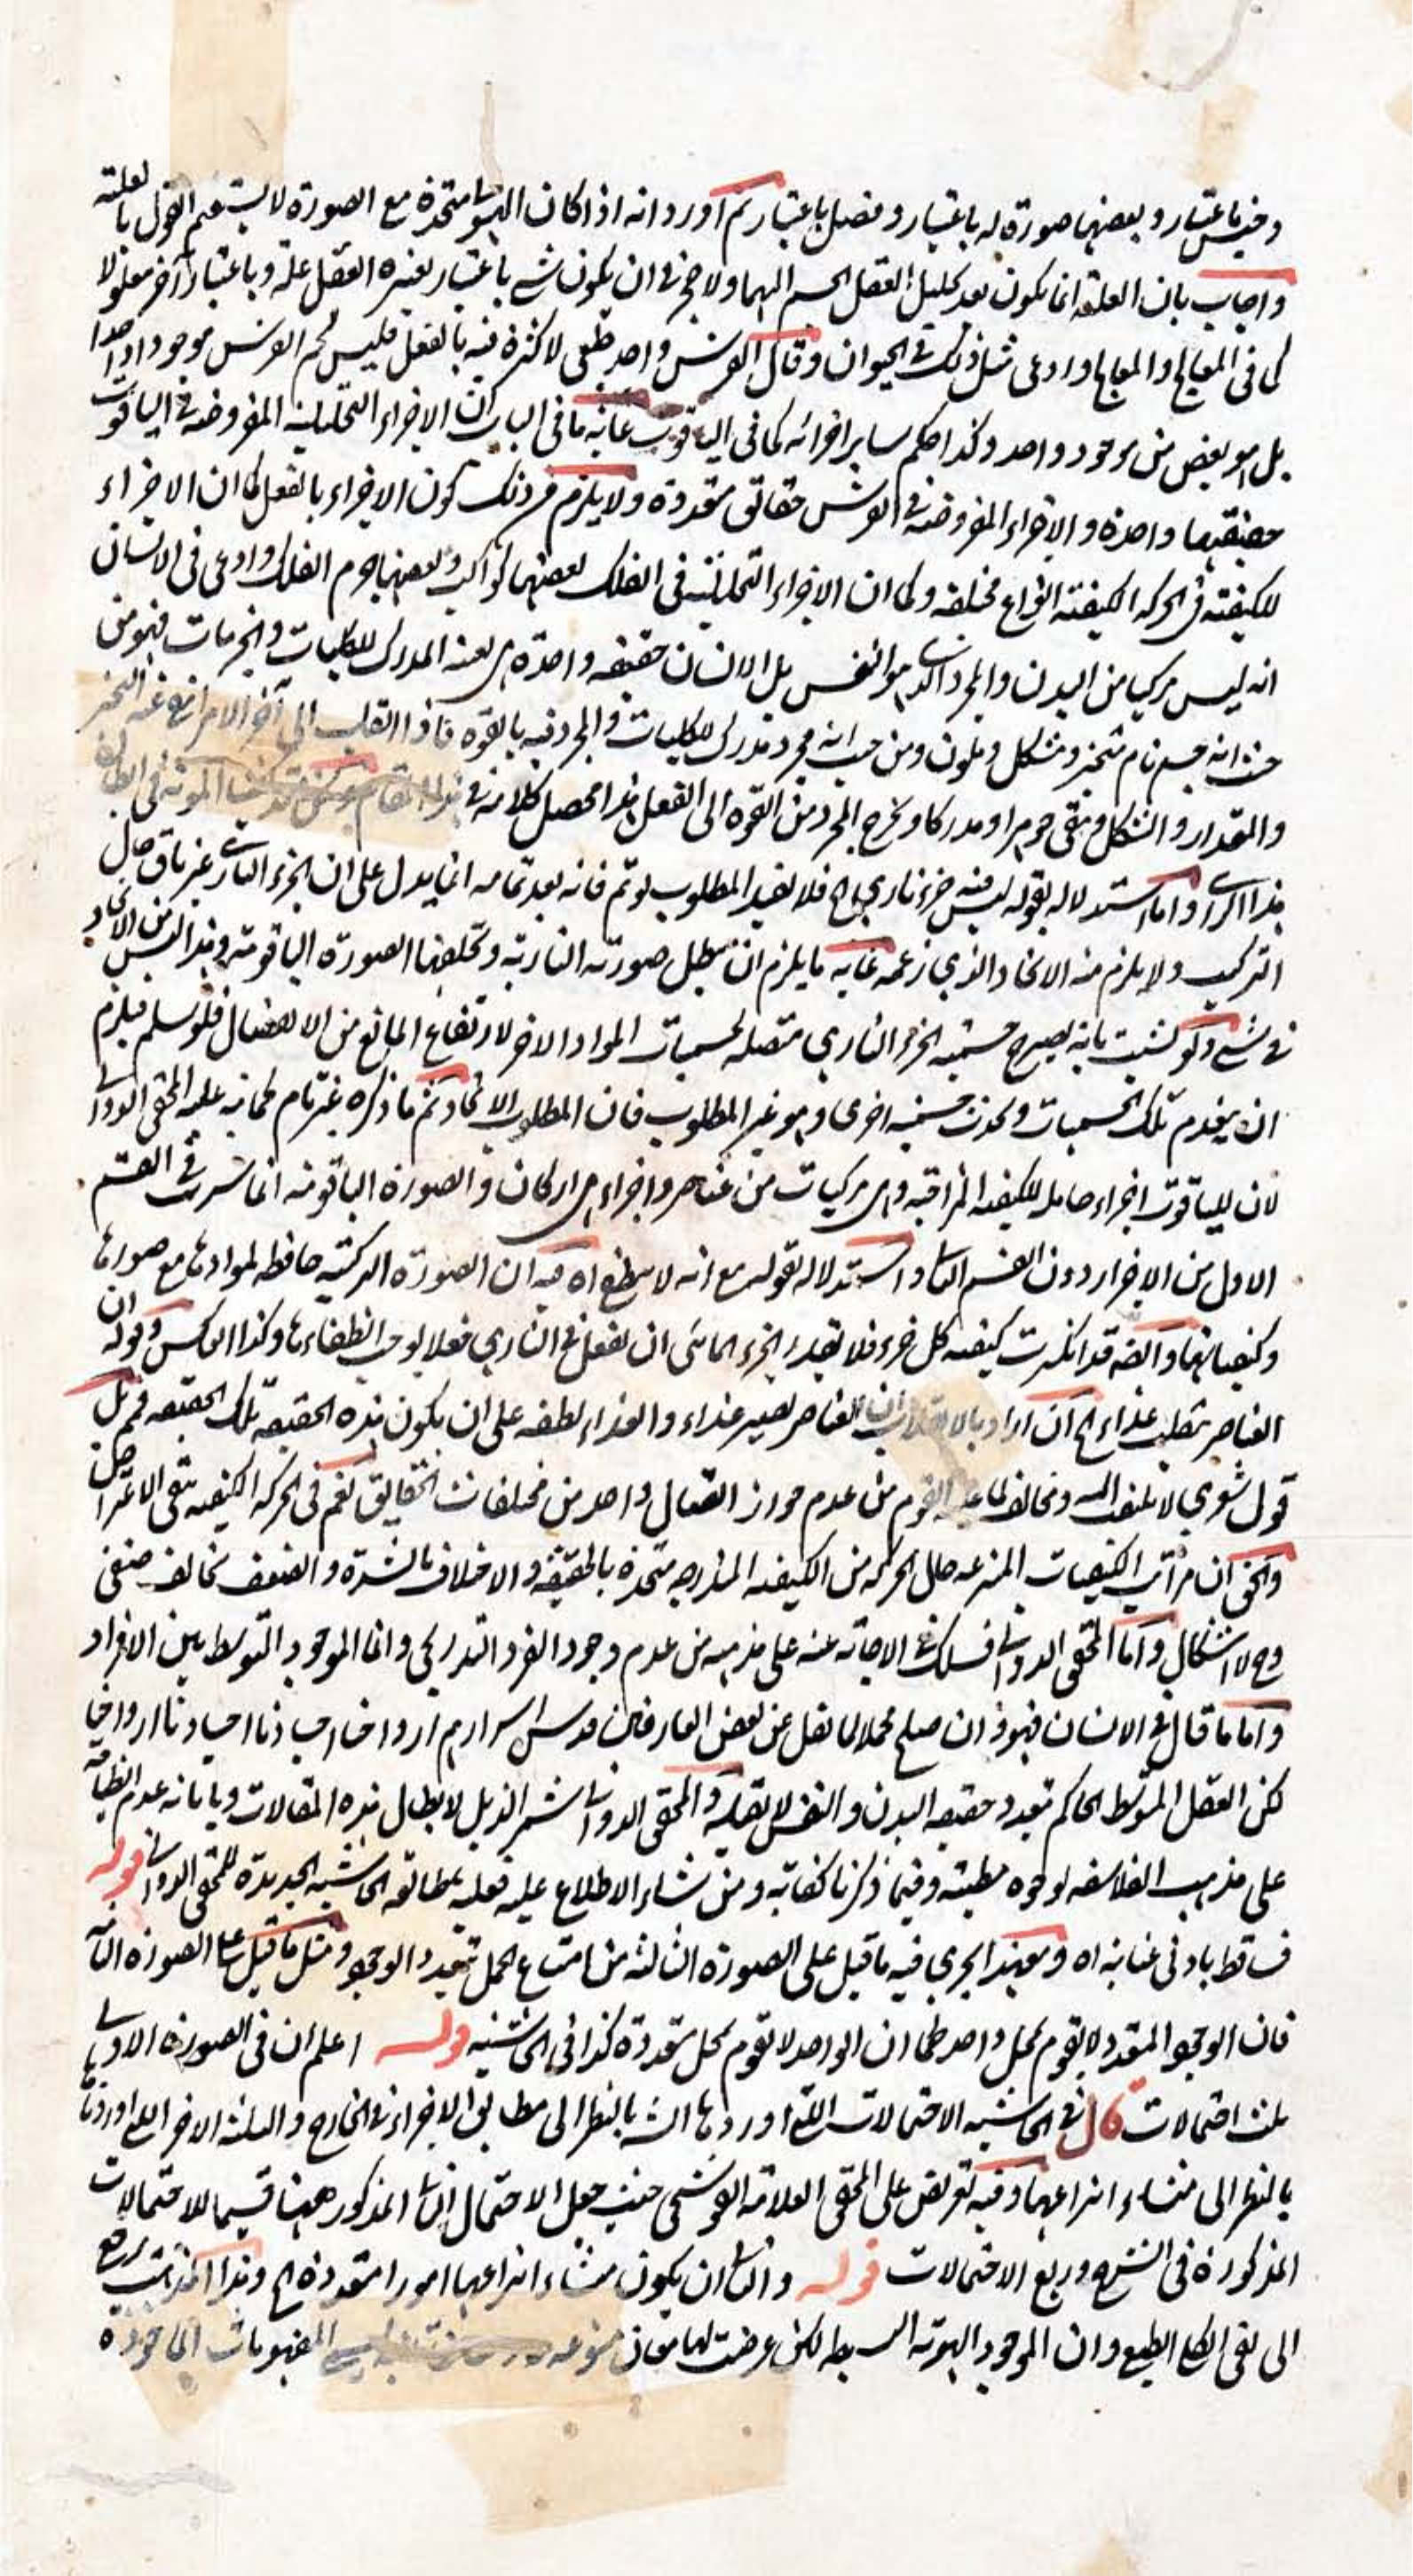 وجنس باعتبار وبعضها صورة له باعتبار وفصل باعتبار ثم أورد انه اذا كان الهيولى متحدة مع الصورة لا يستقيم القول بالعلية
واجاب بان العلية انما يكون بعد تحليل العقل الجسم اليهما ولا حجر في ان يكون شيء باعتبار يعتبره العقل علة وباعتبار آخر معلولا
كما في المعالج والمعالج وادعى مثل ذلك في الحيوان وقال الفرس واحد طبعي لا كثرة فيه بالفعل فليس لحم الفرس موجودا واحدا
بل هو بعض من موجود واحد وكذا حكم ساير اجزائه كما في الياقوت غاية ما في الباب ان الاجزاء التحليلية المفروضة في الياقوت
حقيقتها واحدة والاجزاء المفروضة في الفرس حقائق متعددة ولا يلزم من ذلك كون الاجزاء بالفعل كما ان الاجزاء
للكيفية في الحركة الكيفية انواع مختلفة وكما ان الاجزاء التحليلية في الفلك بعضها كواكب وبعضها جرم الفلك وادعى في الانسان
انه ليس مركبا من البدن والمجرد الذي هو النفس بل الانسان حقيقة واحدة هي بعينه المدرك للكليات والجزئيات فهو من
حيث انه جسم نام متحيز ومتشكل وملون ومن حيث انه مجرد مدرك للكليات والمجرد فيه بالقوة فاذا انقلب الى آخر الامر ارتفع عنه التحيز
والمقدار والشكل وبقى جوهرا ومدركا وخرج المجرد من القوة الى الفعل هذا محصل كلامه في هذا المقام المونة في ابطال
هذا الراي واما استدلاله بقوله ليس فيه جزء ناري الخ فلا يفيد المطلوب لو تم فانه بعد تمامه انما يدل على ان الجزء الناري غير باق حال
التركيب ولا يلزم منه الاتحاد الذي زعمه غاية ما يلزم ان تبطل صورته النارية وتخلفها الصورة الياقوتية وهذا ليس من الاتحاد
في شيء ولو تشبث بانه يصير جسمية الجزء الناري متصلة بجسميات المواد الاخر لارتفاع المانع من الاتصال فلو سلم فيلزم
ان ينعدم تلك الجسميات ويحدث جسمية اخرى وهو غير المطلوب فان المطلوب الاتحاد ثم ما ذكره غير تام لما نبه عليه المحقق الدواني
لان للياقوت اجزاء حاملة للكيفية المزاجية وهي مركبات من عناصر واجزاء هي اركان والصورة الياقوتية انما سرت في القسم
الاول من الاجزاء دون القسم الثاني واستدلاله بقوله مع انه لا ينطفي اه فيه ان الصورة التركيبية حافظة لموادها مع صورها
وكيفياتها وايضا قد انكسرت كيفية كل جزء فلا يقدر الجزء المائي ان يفعل في الناري فعلا يوجب انطفاءها وكذا العكس وقوله ان
العناصر تنقلب غذاء الخ ان اراد بالانقلاب ان العناصر يصير غذاء والغذاء نطفة على ان يكون هذه الحقيقة تلك الحقيقة فهم بل
قول شعري لا يلتفت اليه ومخالف لما عليه القوم من عدم جواز اتصال واحد من مختلفات الحقايق نعم في الحركة الكيفية يبقى الاعتراض
والحق ان مراتب الكيفيات المنتزعة خلال الحركة من الكيفية المتدرجة متحدة بالحقيقة والاختلاف بالشدة والضعف تخالف صنفي
وح لا اشكال واما المحقق الدواني فسلك في الاجابة عنه على مذهبه من عدم وجود الفرد التدريجي وانما الموجود التوسط بين الافراد
واما ما قال في الانسان فهو وان صلح محملا لما نقل عن بعض العارفين قدس اسرارهم ارواحنا اجسادنا اجسادنا ارواحنا
لكن العقل المتوسط الحاكم بتعدد حقيقة البدن والنفس لا يقبله والمحقق الدواني شمر الذيل لابطال هذه المقالات وبابانة عدم انطباقه
على مذهب الفلاسفة لوجوه مطيشة وفيما ذكرنا كفاية ومن شاء الاطلاع عليه فعليه بمطالعة الحاشية الجديدة للمحقق الدواني قوله
فساقط بادنى عناية اه وبعينه يجري فيه ما قيل على الصورة الثالثة من امتناع الحمل بتعدد الوجود ومثل ما قيل على الصورة الثانية
فان الوجود المتعدد لا يقوم بمحل واحد كما ان الواحد لا يقوم بمحل متعددة كذا في الحاشية قوله اعلم ان في الصورة الاولى
ثلث احتمالات قال في الحاشية الاحتمالات التي اوردها الش بالنظر الى مطابق الاجزاء في الخارج والثلثة الاخر التي اوردناها
بالنظر الى منشاء انتزاعها وفيه تعريض على المحقق العلامة القوشجي حيث جعل الاحتمال الثاني المذكور ههنا قسيما للاحتمالات
المذكورة في الشرح وربع الاحتمالات قوله والثاني ان يكون منشاء انتزاعها امورا متعددة الخ وهذا المذهب يرجع
الى نفي الكلي الطبيعي وان الموجود الهوية البسيطة لكن عرضت لها معان متنوعة المفهومات الماخوذة